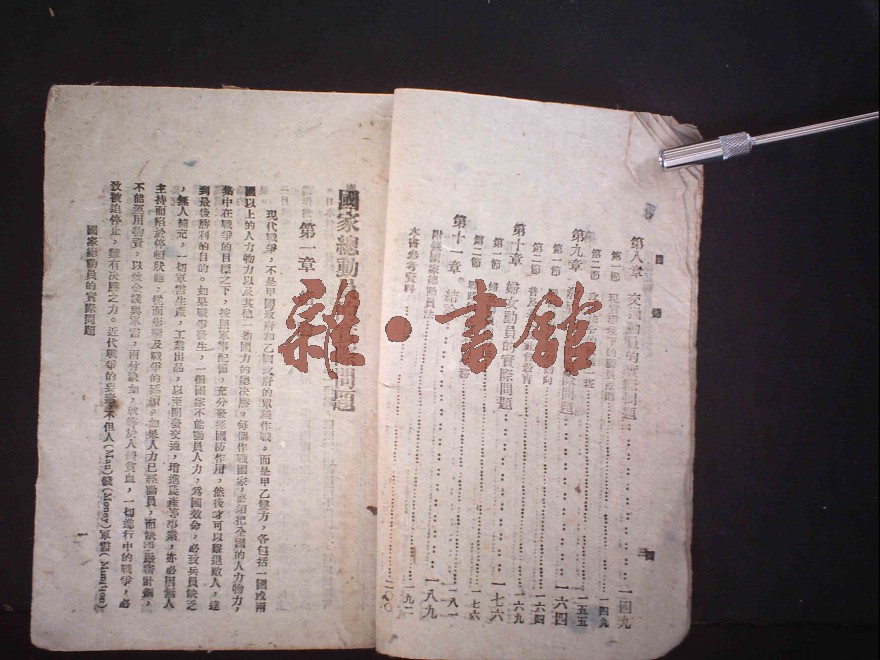 目 錄
第八章 交通動員的實際問題 一四九
第一節 一四九
第二節 一五五
第九章 問題 一六四
第一節 一六四
第二節 一六九
第十章 婦女動員的實際問題 一七六
第一節 一七六
第二節 一八一
第十一章 結 一八九
附錄國家總動員法 一九二
本書參考資料 二〇〇
國家總動員 問題
第一章
現代戰爭，不是甲國政府和乙國政府的軍隊作戰，而是甲乙雙方，各包括一國或兩
國以上的人力物力以及其他一切國力的總決勝。每個作戰國家，必須把全國的人力物力，
集中在戰爭的目標之下，按照軍事配備，充分發揮國防作用，然後才可以擊退敵人，達
到最後勝利的目的。如果戰爭發生，一個國家不能動員人力，爲國效命，必致兵員缺乏
，無人補充，一切軍需生產，工業出品，以至開發交通，增進農產等事業，亦必因無人
主持而陷於停頓狀態，從而影響及戰爭的延續。如果人力已經動員，而缺乏嚴密計劃，
不能運用物資，以致金錢與軍需，兩行缺如，就等於人體貧血，一切進行中的戰爭，必
致被迫停止，雖有決勝之力。近代戰爭的要素不但人(Man)錢(Money)軍需(Munition)
國家總動員的實際問題
一
雜·書館